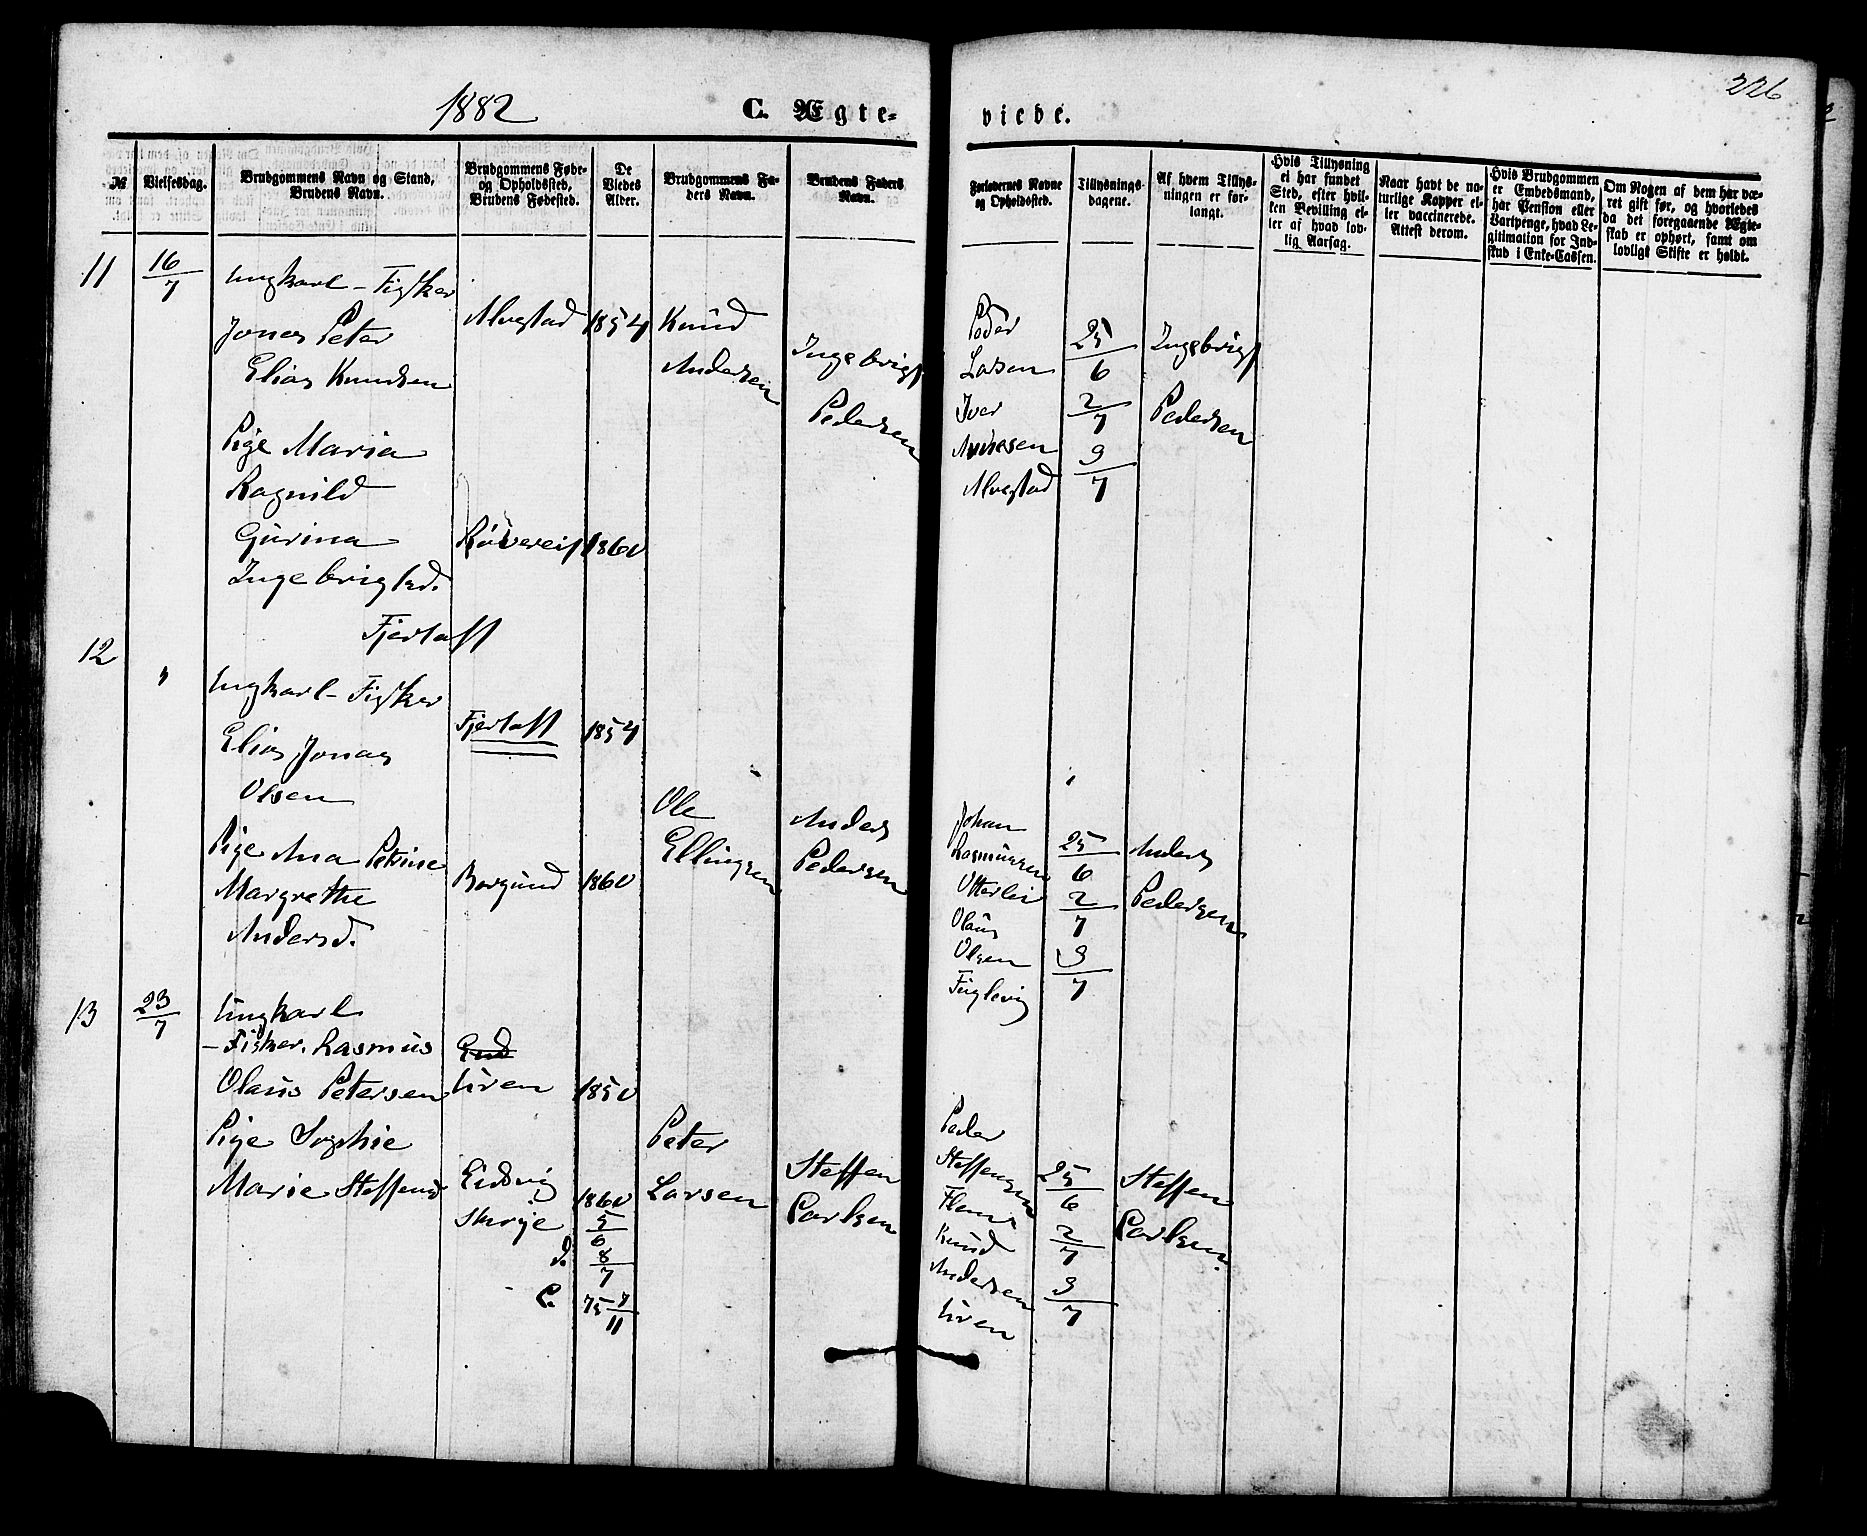 1882
C. Ægte-
viede.
226
№
Vielsesdag.
Brudgommens Navn og Stand,
Brudens Navn.
Brudgommens Føde-
og Opholdssted,
Brudens Fødested.
De
Viedes
Alder.
Brudgommens Fa-
ders Navn.
Brudens Faders
Navn.
Forlovernes Navne
og Opholdssted.
Tillysnings-
dagene.
Af hvem Tillys-
ningen er for-
langt.
Hvis Tillysning
ei har fundet
Sted, efter hvil-
ken Bevilling el-
ler af hvad lov-
lig Aarsag.
Naar havt de na-
turlige Kopper el-
ler vaccinerede.
Attest derom.
Hvis Brudgommen
er Embedsmand,
har Pension eller
Vartpenge, hvad Le-
gitimation for Ind-
skud i Enke-Cassen.
Om Nogen af dem har væ-
ret gift før, og hvorledes
da det foregaaende Ægte-
skab er ophørt, samt om
lovligt Skifte er holdt.
11
16/7
Ungkarl - Fisker
Jonas Peter
Elias Knudsen
Pige Maria
Ragnild
Gurina
Ingebrigtsd.
Fjertoft
Alvestad
1854
1860
Knud
Andersen
Ingebrigt
Pedersen
Peder
Larsen
Iver
Alvestad
25/6
2/7
9/7
Ingebrigt
Pedersen
12
"
Ungkarl - Fisker
Elias Jonas
Olsen
Pige Ana Petrine
Margrethe
Andersd.
Fjertoft
1854
Borgund
1860
Ole
Ellingsen
Anders
Pedersen
Johan
Rasmussen
Otterlei
Olaus
Olsen
Fuglevig
25/6
2/7
9/7
Anders
Pedersen
13
23/7
Ungkarl
- Fisker. Rasmus
Olaus Petersen
Pige Sophie
Marie Steffensd
Uren
1850
Eidsvig
Skroje
1860
5/6
d. 8/7
C. 75 7/11
Peter
Larsen
Steffen
Carlsen
Peder
Steffensen
Flem
Knud
Andersen
Uren
25/6
2/7
9/7
Steffen
Carlsen